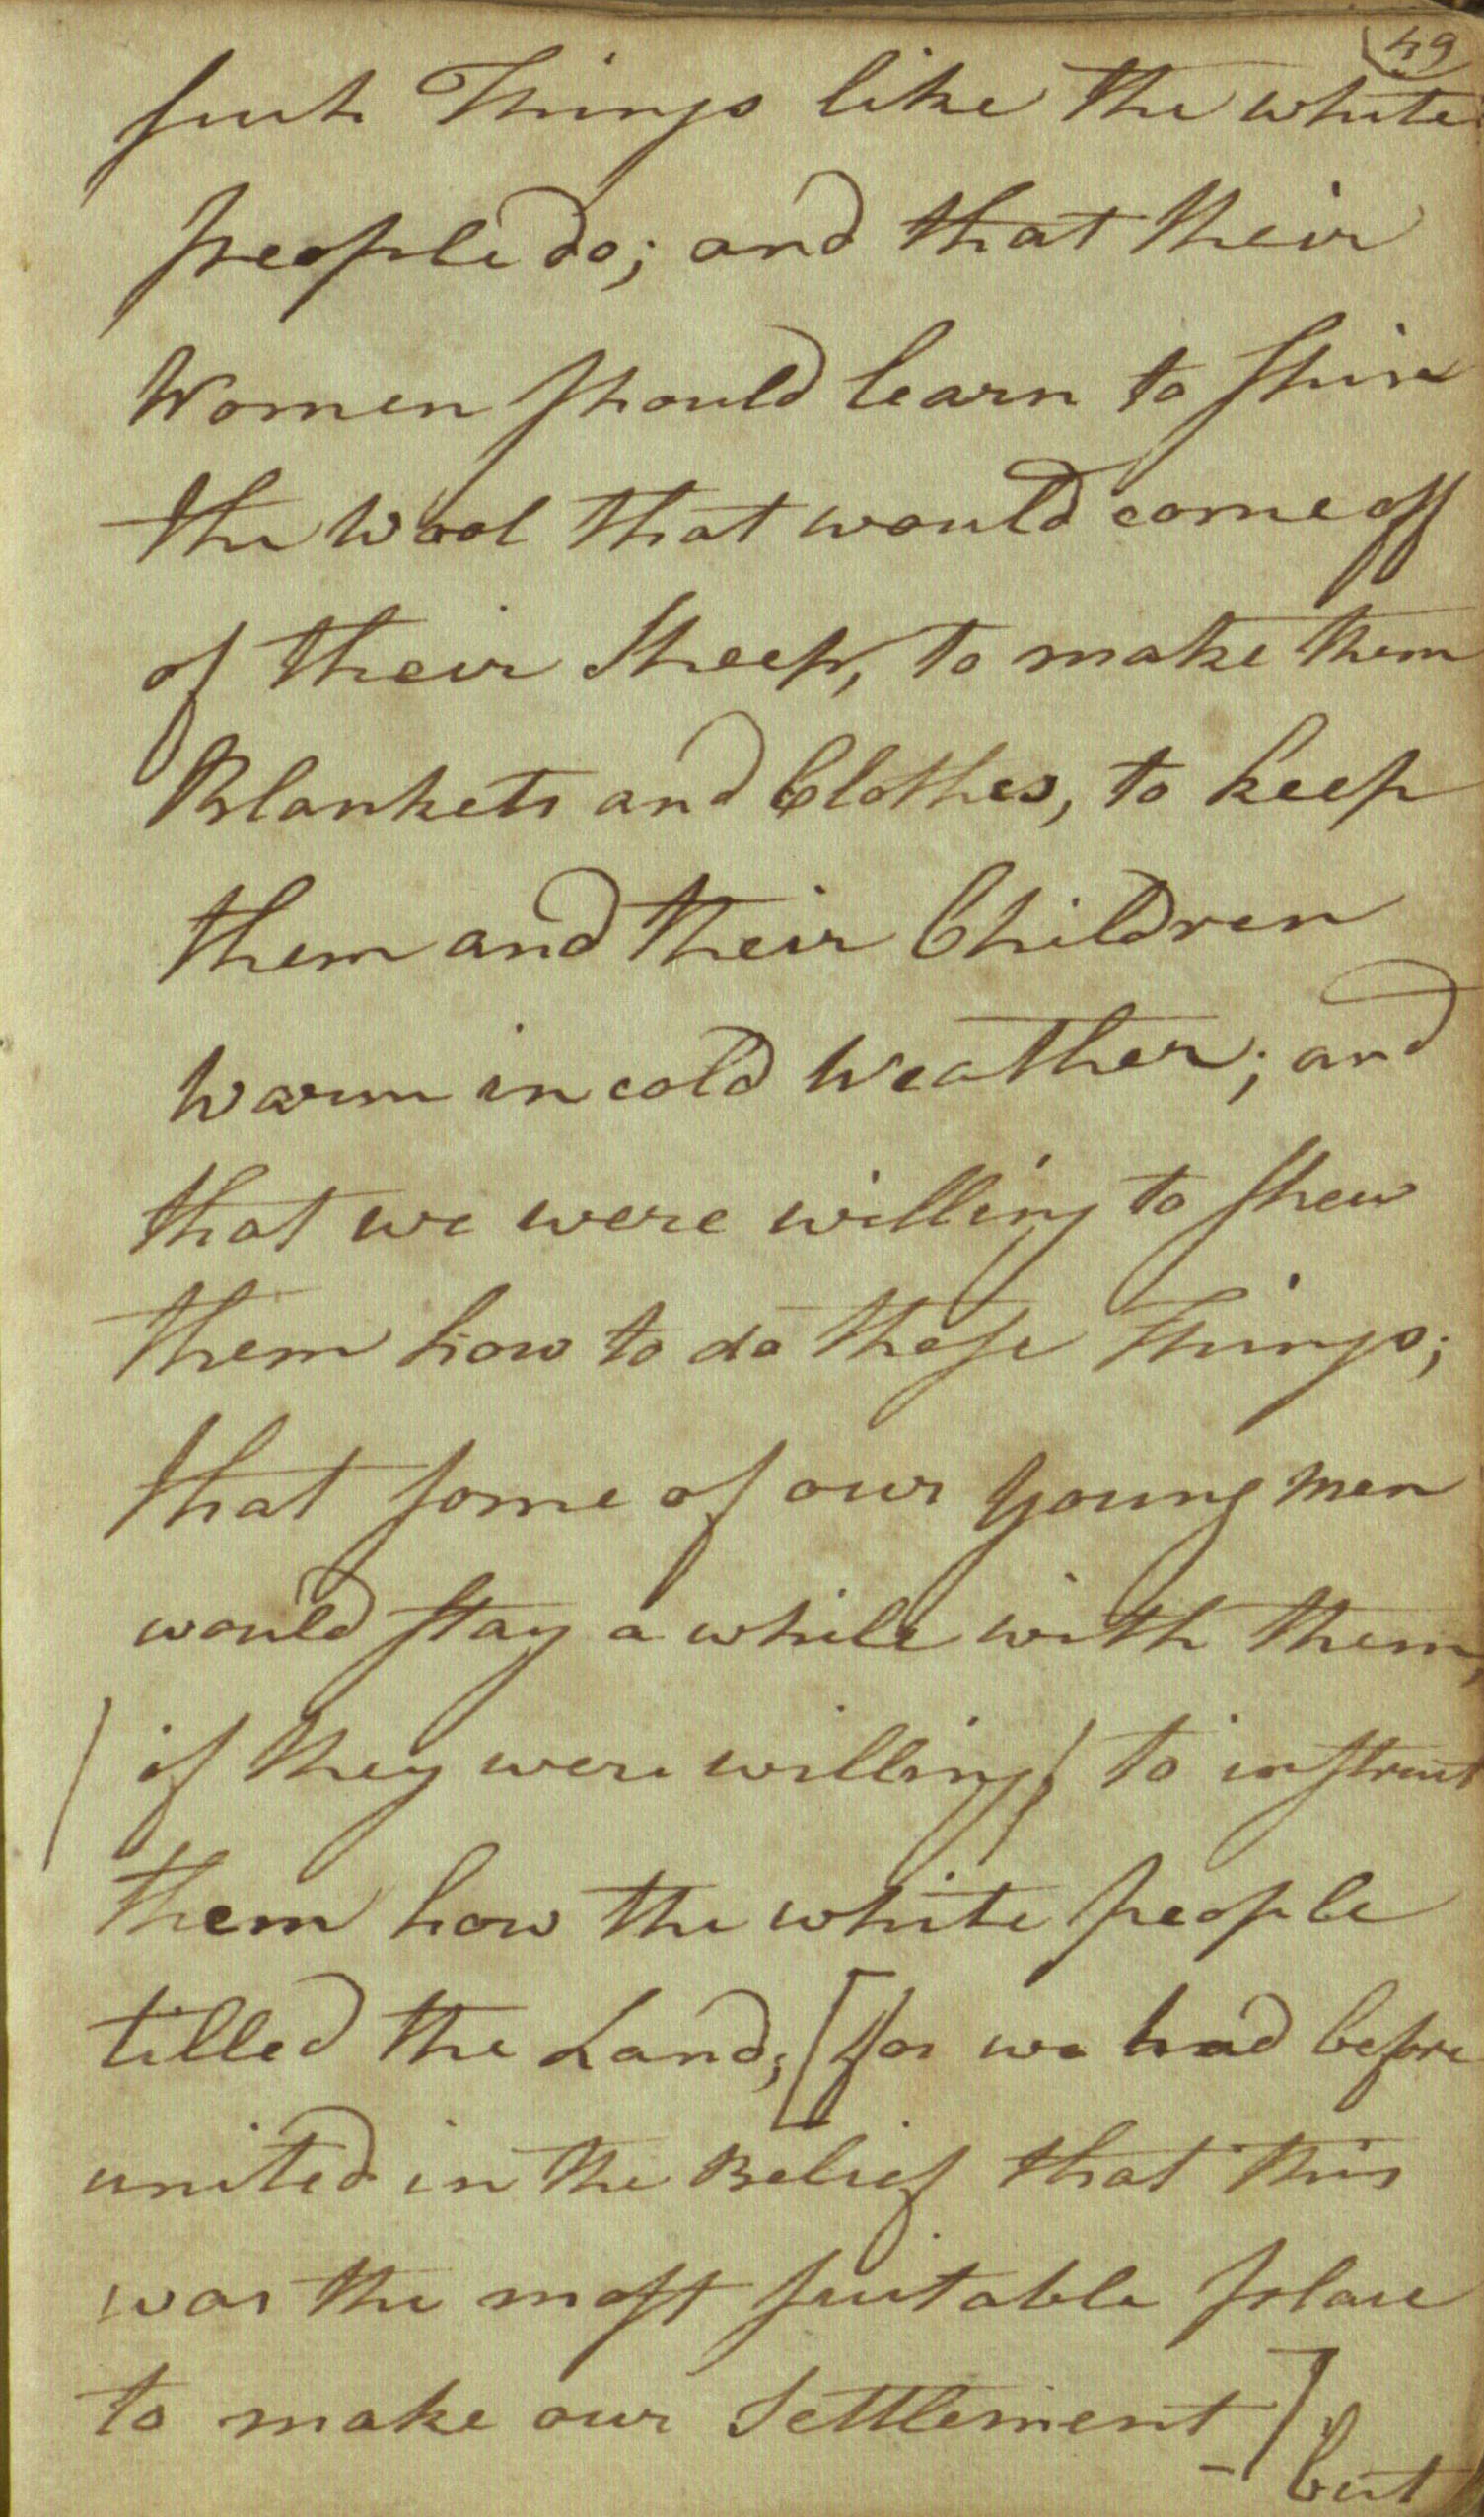 49
such Things like the white
people do; and that their
Women should learn to spin
the Wool that would come off
of their Sheep, to make them
Blankets and Clothes, to keep
them and their Children
warm in cold Weather; and
that we were willing to shew
them how to do these Things;
that some of our young men
would stay a while with them,
(if they were willing) to instruct
them how the white people
tilled the Land; [for we had before
united in the Belief that this
was the most suitable place
to make our Settlement -]
but